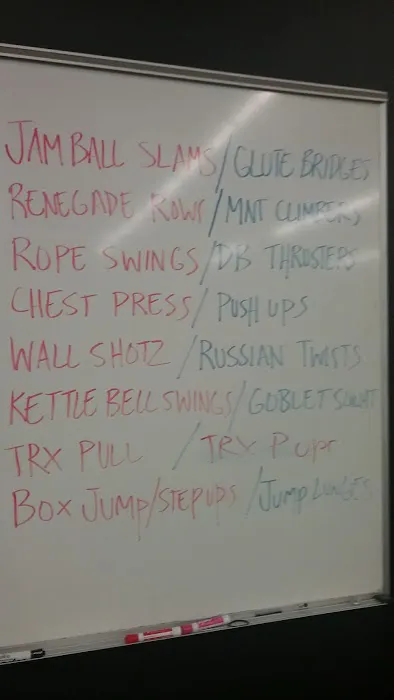 JAM BALL SLAMS / GLUTE BRIDGES
RENEGADE ROWS / MNT CLIMBERS
ROPE SWINGS / DB THRUSTERS
CHEST PRESS / PUSH UPS
WALL SHOTZ / RUSSIAN TWISTS
KETTLE BELL SWINGS / GOBLET SQUAT
TRX PULL / TRX
BOX JUMP/STEP UPS / JUMP LUNGES